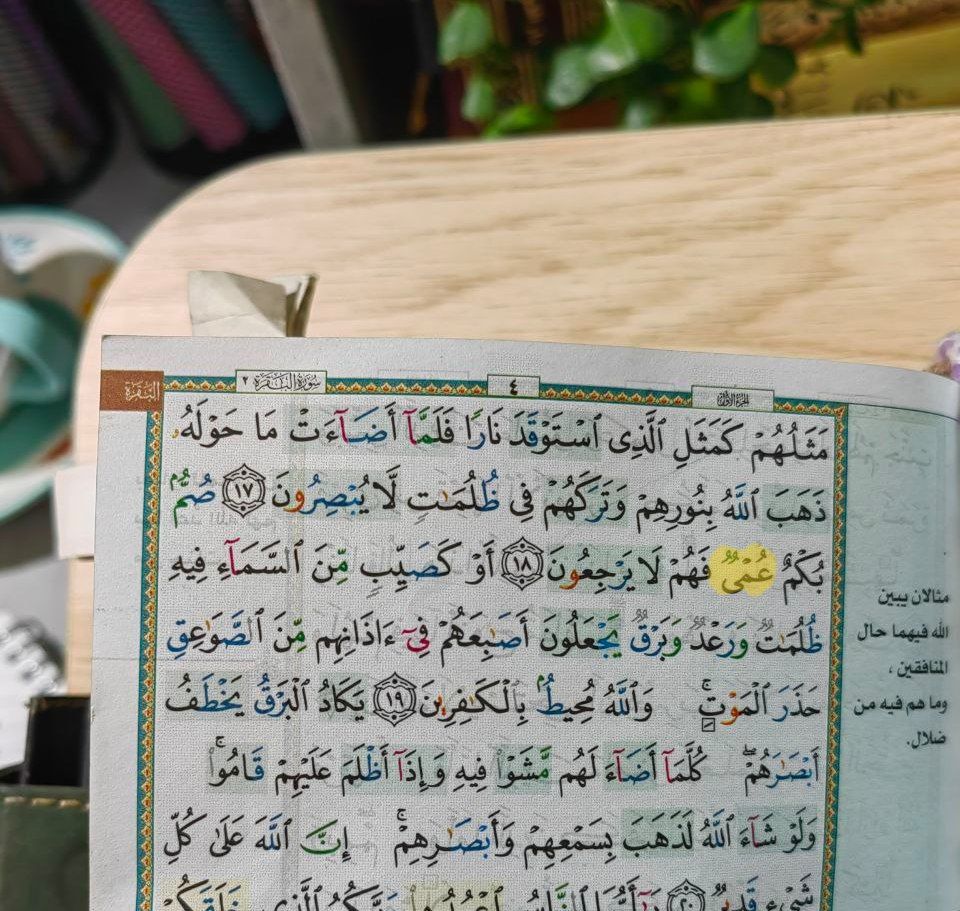 الجزء الأول
٤
سُورَةُ البَقَرَةِ ٢
البَقَرَة
مَثَلُهُمْ كَمَثَلِ ٱلَّذِى ٱسْتَوْقَدَ نَارًا فَلَمَّآ أَضَآءَتْ مَا حَوْلَهُۥ
ذَهَبَ ٱللَّهُ بِنُورِهِمْ وَتَرَكَهُمْ فِى ظُلُمَـٰتٍ لَّا يُبْصِرُونَ ١٧ صُمٌّۢ
بُكْمٌ عُمْىٌ فَهُمْ لَا يَرْجِعُونَ ١٨ أَوْ كَصَيِّبٍ مِّنَ ٱلسَّمَآءِ فِيهِ
ظُلُمَـٰتٌ وَرَعْدٌ وَبَرْقٌ يَجْعَلُونَ أَصَـٰبِعَهُمْ فِىٓ ءَاذَانِهِم مِّنَ ٱلصَّوَٰعِقِ
حَذَرَ ٱلْمَوْتِ ۚ وَٱللَّهُ مُحِيطٌۢ بِٱلْكَـٰفِرِينَ ١٩ يَكَادُ ٱلْبَرْقُ يَخْطَفُ
أَبْصَـٰرَهُمْ ۖ كُلَّمَآ أَضَآءَ لَهُم مَّشَوْا۟ فِيهِ وَإِذَآ أَظْلَمَ عَلَيْهِمْ قَامُوا۟ ۚ
وَلَوْ شَآءَ ٱللَّهُ لَذَهَبَ بِسَمْعِهِمْ وَأَبْصَـٰرِهِمْ ۚ إِنَّ ٱللَّهَ عَلَىٰ كُلِّ
شَىْءٍ قَدِيرٌ ٢٠ يَـٰٓأَيُّهَا ٱلنَّاسُ ٱعْبُدُوا۟ رَبَّكُمُ ٱلَّذِى خَلَقَكُمْ
مثالان يبين
الله فيهما حال
المنافقين ،
وما هم فيه من
ضلال.